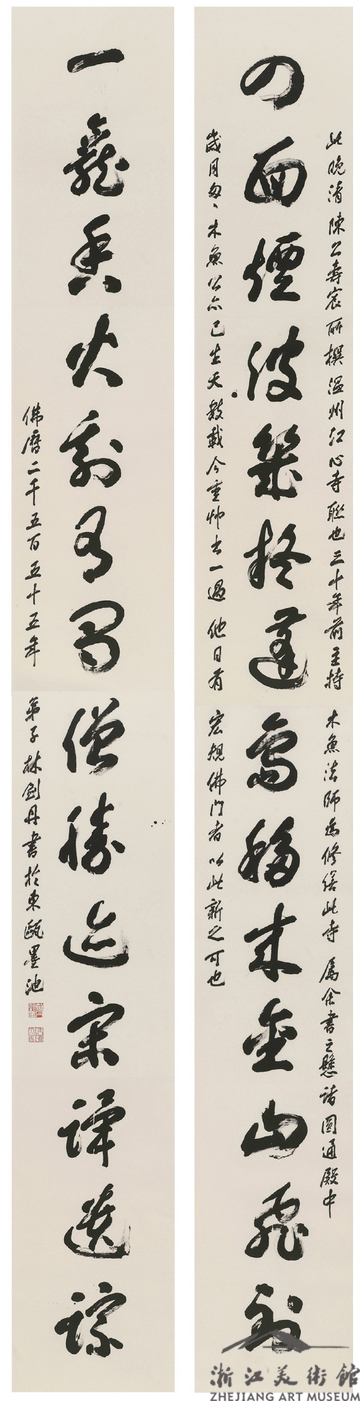 此晚清陳公壽宸所撰溫州江心寺聯也三十年前主持木魚法師為修繕此寺屬余書之懸諸圓通殿中
四面煙波幾蓬島移來金山飛到
歲月匆匆木魚公亦已生天數載今重書一過他日有宏規佛門者以此新之可也
一龕香火有蜀僧勝迹宋遺蹤
佛曆二千五百五十五年弟子林劍丹書於東甌墨池
浙江美術館
ZHEJIANG ART MUSEUM